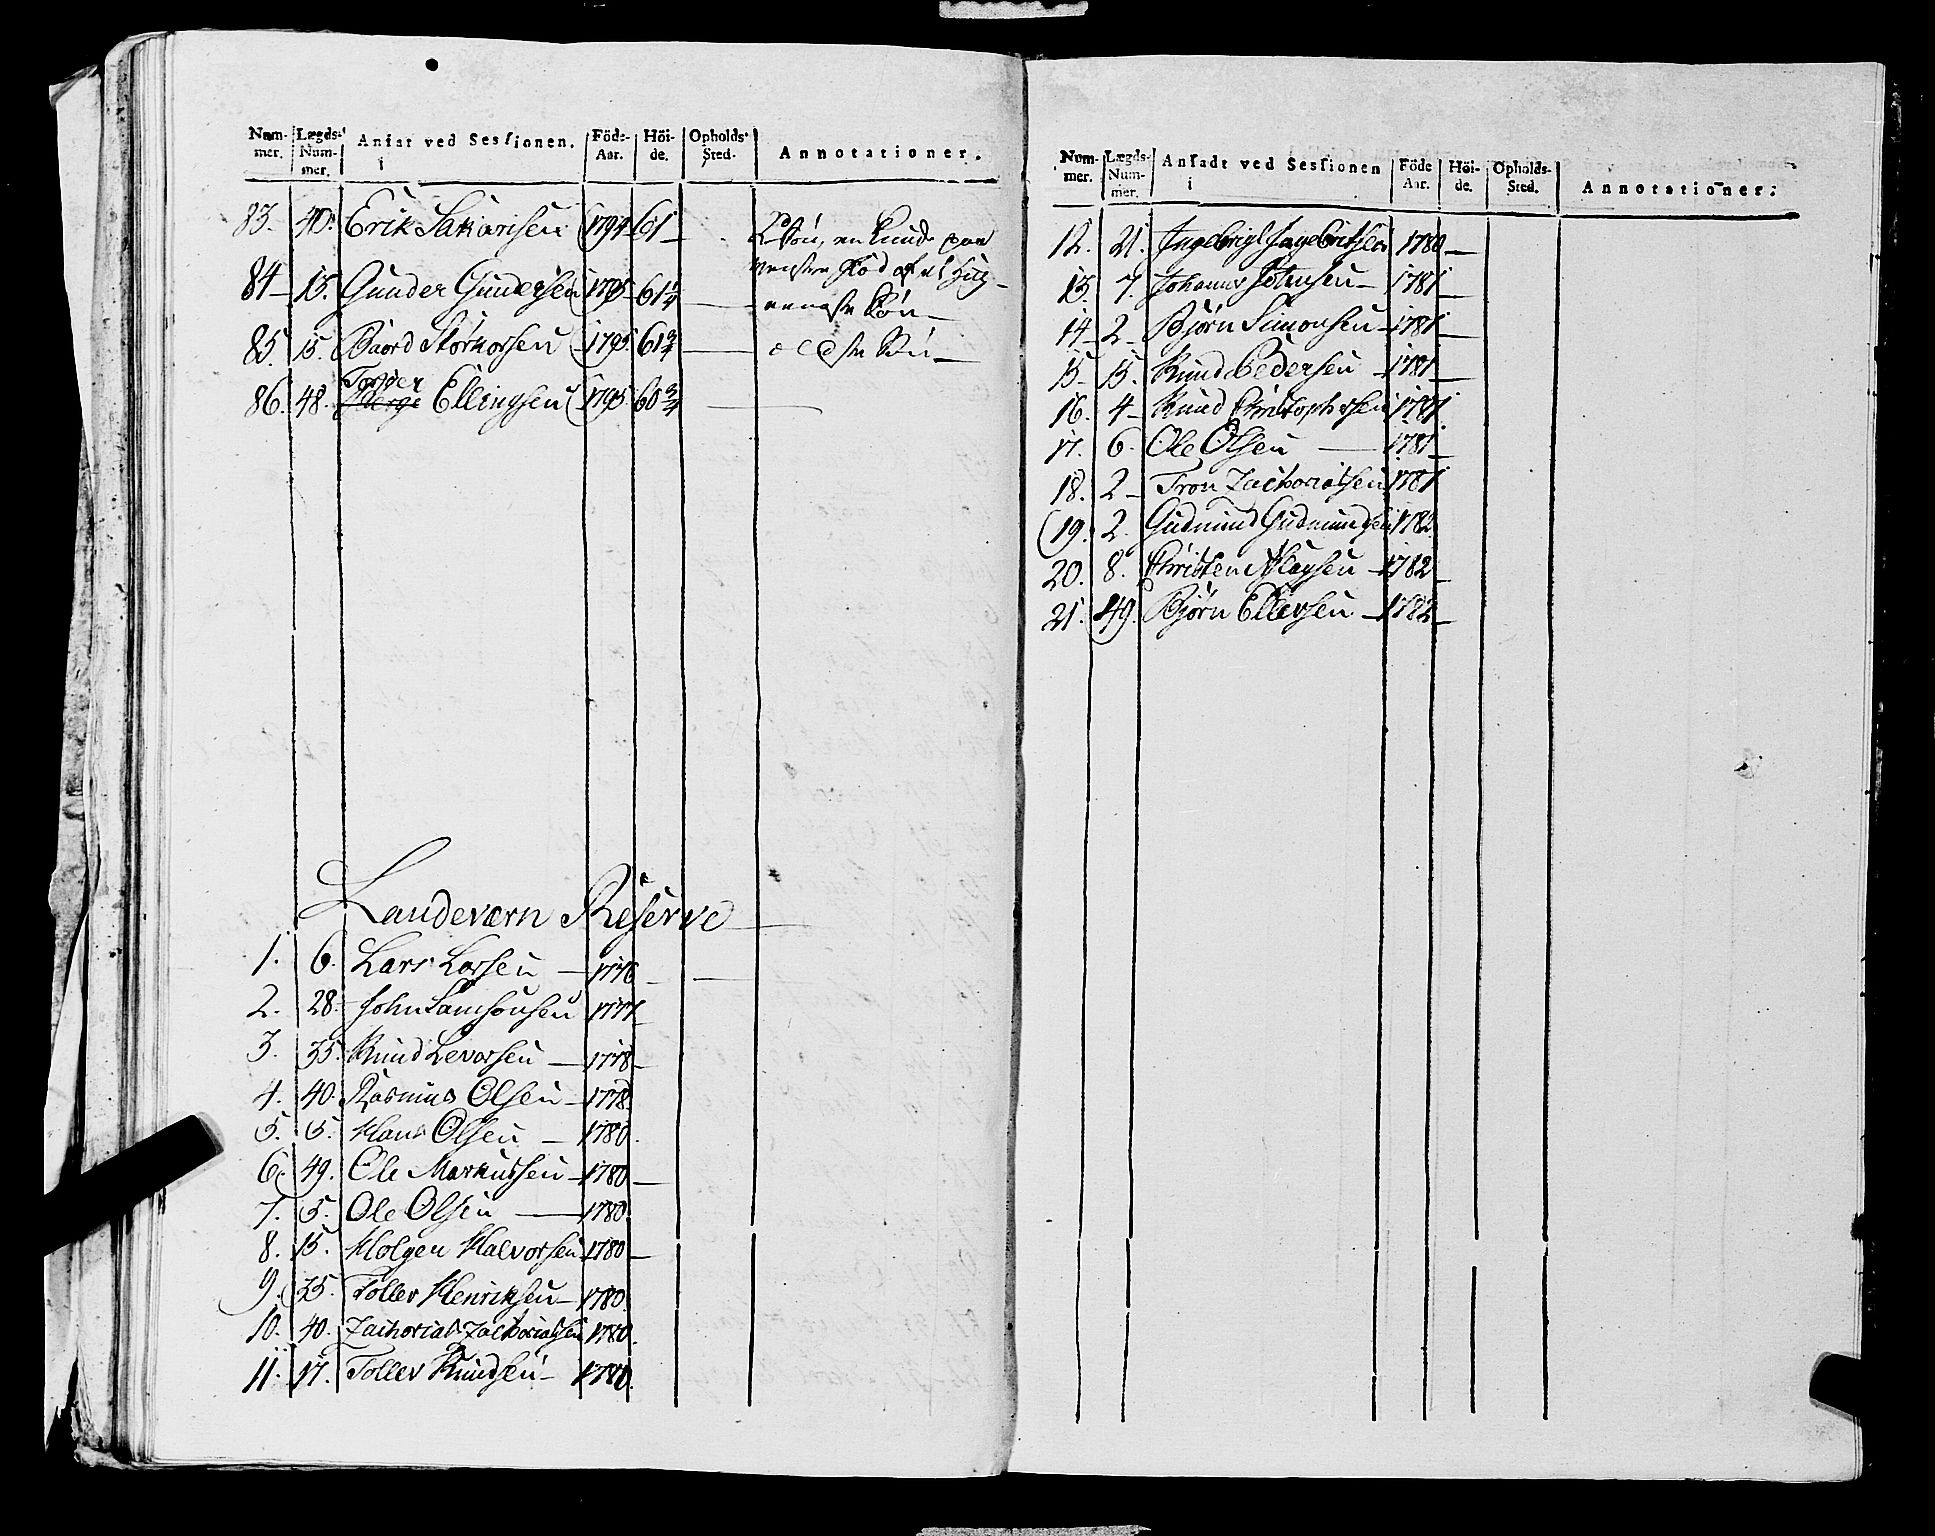 Num-mer. Lægds-Num-mer. Ansat ved Sessionen. i Föde-Aar. Höi-de. Opholds Sted. Annotationer.
83. 40. Erik Sakarisen 1794 61
84 15. Gunder Gundersen 1795 61 1/4
85. 15. Baard Storkorsen 1795 61 3/4 eldste Søn
Torger
86. 48. Ellingsen 1795 60 3/4
Landeværn Reserve
1. 6. Lars Larsen 1776
2. 28. John Samsonsen 1777
3. 35. Knud Levorsen 1778
4. 40. Rasmus Olsen 1778
5. 5. Hans Olsen 1780
6. 49. Ole Markussen 1780
7. 5. Ole Olsen 1780
8. 15. Holgen Halvorsen 1780
9. 35. Tollev Henriksen 1780
10. 40. Zacharias Zachariassen 1780
11. 17. Tollev Knudsen 1780
Num-mer. Lægds-Num-mer. Ansadt ved Sessionen i Föde Aar. Höi-de. Opholds-Sted. Annotationer:
12. 21. Ingebrigt Ingebritsen 1780
13. 7. Johannes 1781
14 2 Bjørn Simonsen 1781
15 15. Knud Pedersen 1781
16. 4 Knud Christophersen 1781
17. 6. Ole Olsen 1781
18. 2 Tron Zachariassen 1781
19. 2. Gudmund Gudmundsen 1782
20. 8. Christen Aslagsen 1782
21. 49. Bjørn Ellevsen 1782